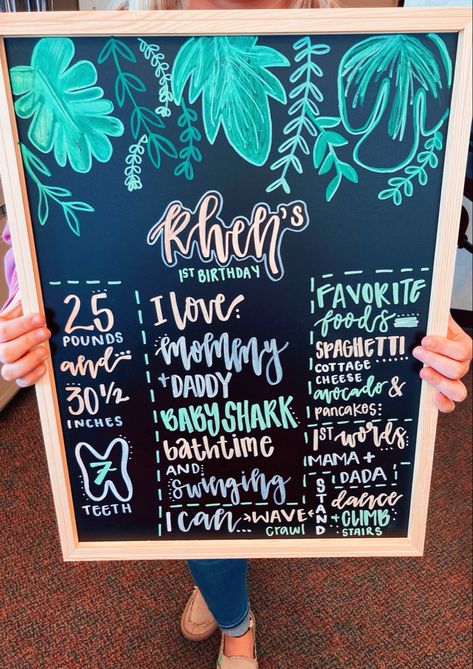 Rhen's
1ST BIRTHDAY
25
POUNDS
and
30 1/2
INCHES
7
TEETH
I love:
mommy
+ DADDY
BABY SHARK
bathtime
AND
swinging
I can...
WAVE
crawl
STAND
dance
+ CLIMB
STAIRS
FAVORITE
foods
SPAGHETTI
COTTAGE
CHEESE
avocado &
pancakes
1st words
MAMA +
DADA